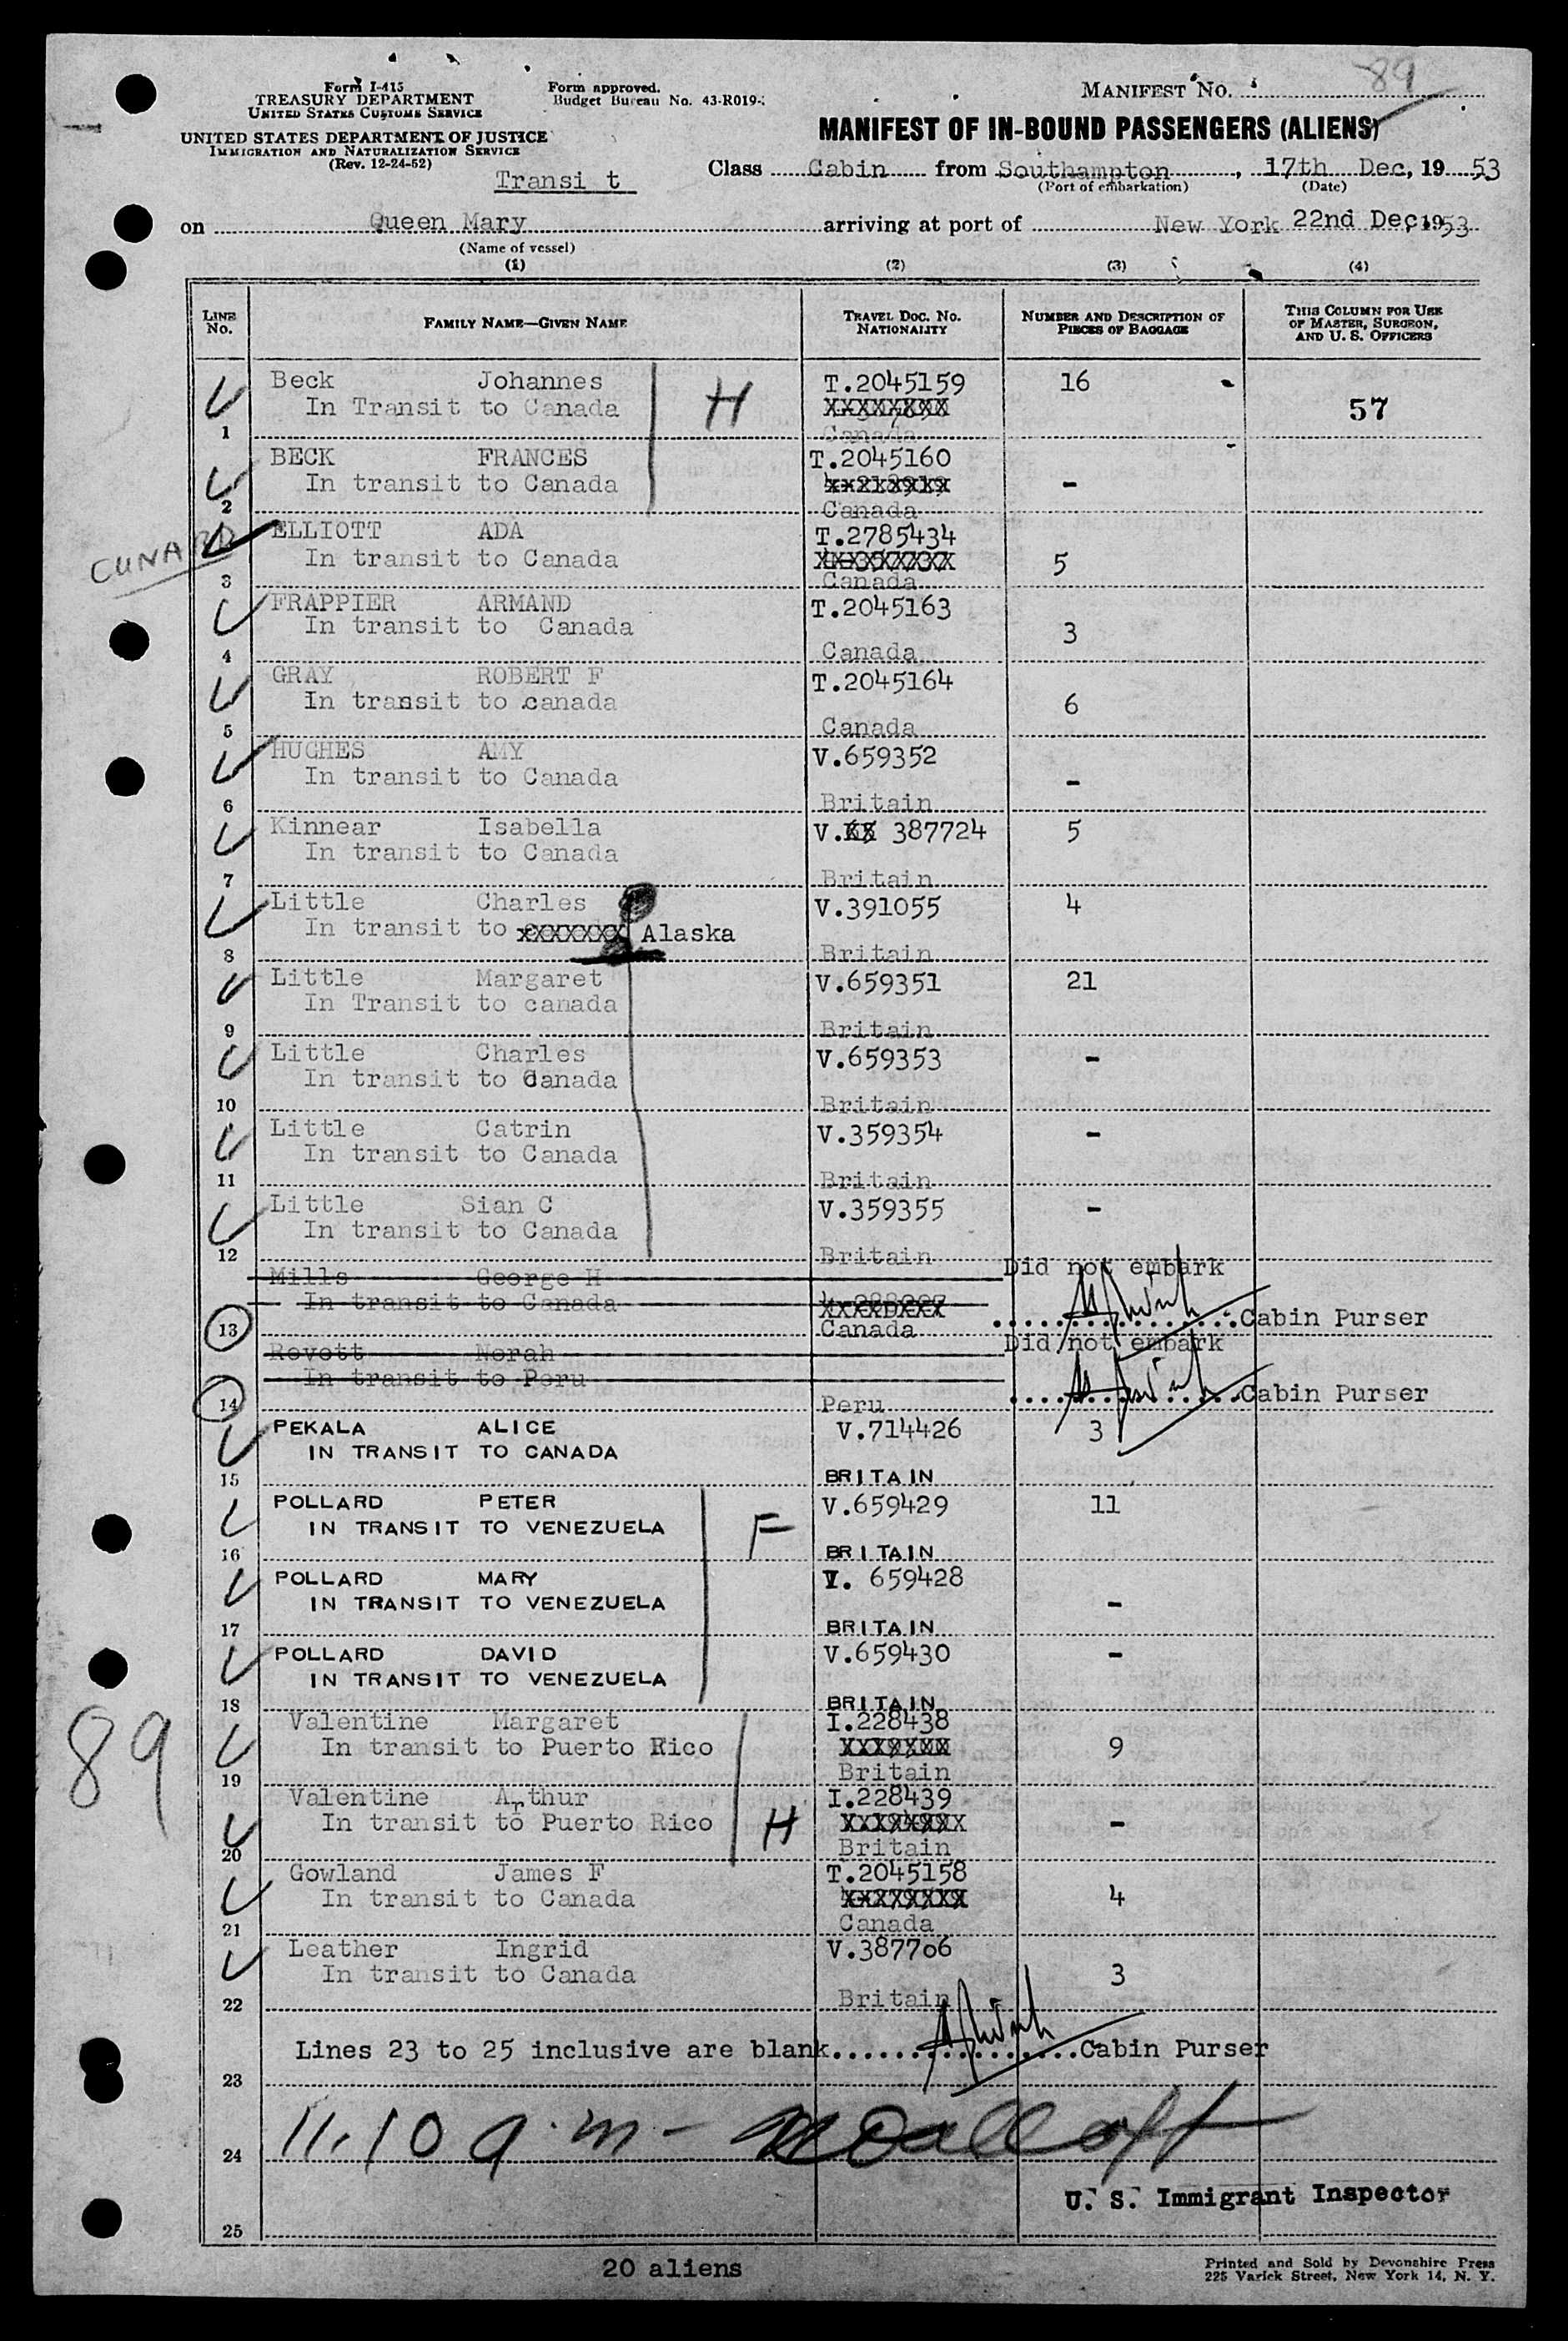 Form I-415
TREASURY DEPARTMENT
UNITED STATES CUSTOMS SERVICE
UNITED STATES DEPARTMENT OF JUSTICE
IMMIGRATION AND NATURALIZATION SERVICE
(Rev. 12-24-52)
Form approved.
Budget Bureau No. 43-R019-
MANIFEST NO. 89
MANIFEST OF IN-BOUND PASSENGERS (ALIENS)
Transi t
Class Cabin from Southampton, 17th Dec, 19 53
(Port of embarkation) (Date)
on Queen Mary arriving at port of New York 22nd Dec, 19 53
(Name of vessel)
(1) (2) (3) (4)
LINE No.
FAMILY NAME—GIVEN NAME
TRAVEL DOC. NO. NATIONALITY
NUMBER AND DESCRIPTION OF PIECES OF BAGGAGE
THIS COLUMN FOR USE OF MASTER, SURGEON, AND U. S. OFFICERS
Beck Johannes T.2045159 16
In Transit to Canada H 57
1 Canada
BECK FRANCES T.2045160
In transit to Canada -
2 Canada
CUNARD
ELLIOTT ADA T.2785434
In transit to Canada 5
3 Canada
FRAPPIER ARMAND T.2045163
In transit to Canada 3
4 Canada
GRAY ROBERT F T.2045164
In transit to canada 6
5 Canada
HUGHES AMY V.659352
In transit to Canada -
6 Britain
Kinnear Isabella V. 387724 5
In transit to Canada
7 Britain
Little Charles V.391055 4
In transit to xxxxxxx Alaska
8 Britain
Little Margaret V.659351 21
In Transit to canada
9 Britain
Little Charles V.659353 -
In transit to Canada
10 Britain
Little Catrin V.359354 -
In transit to Canada
11 Britain
Little Sian C V.359355 -
In transit to Canada
12 Britain
Mills George H Did not embark
In transit to Canada
13 Canada Cabin Purser
Rovett Norah Did not embark
In transit to Peru
14 Peru Cabin Purser
PEKALA ALICE V.714426 3
IN TRANSIT TO CANADA
15 BRITAIN
POLLARD PETER V.659429 11
IN TRANSIT TO VENEZUELA F
16 BRITAIN
POLLARD MARY V. 659428
IN TRANSIT TO VENEZUELA -
17 BRITAIN
POLLARD DAVID V.659430 -
IN TRANSIT TO VENEZUELA
18 BRITAIN
89
Valentine Margaret I.228438
In transit to Puerto Rico 9
19 Britain
Valentine Arthur I.228439
In transit to Puerto Rico H -
20 Britain
Gowland James F T.2045158
In transit to Canada 4
21 Canada
Leather Ingrid V.387706
In transit to Canada 3
22 Britain
Lines 23 to 25 inclusive are blank.................Cabin Purser
23
11.10 a.m -
24
U. S. Immigrant Inspector
25
20 aliens
Printed and Sold by Devonshire Press
225 Varick Street, New York 14, N. Y.